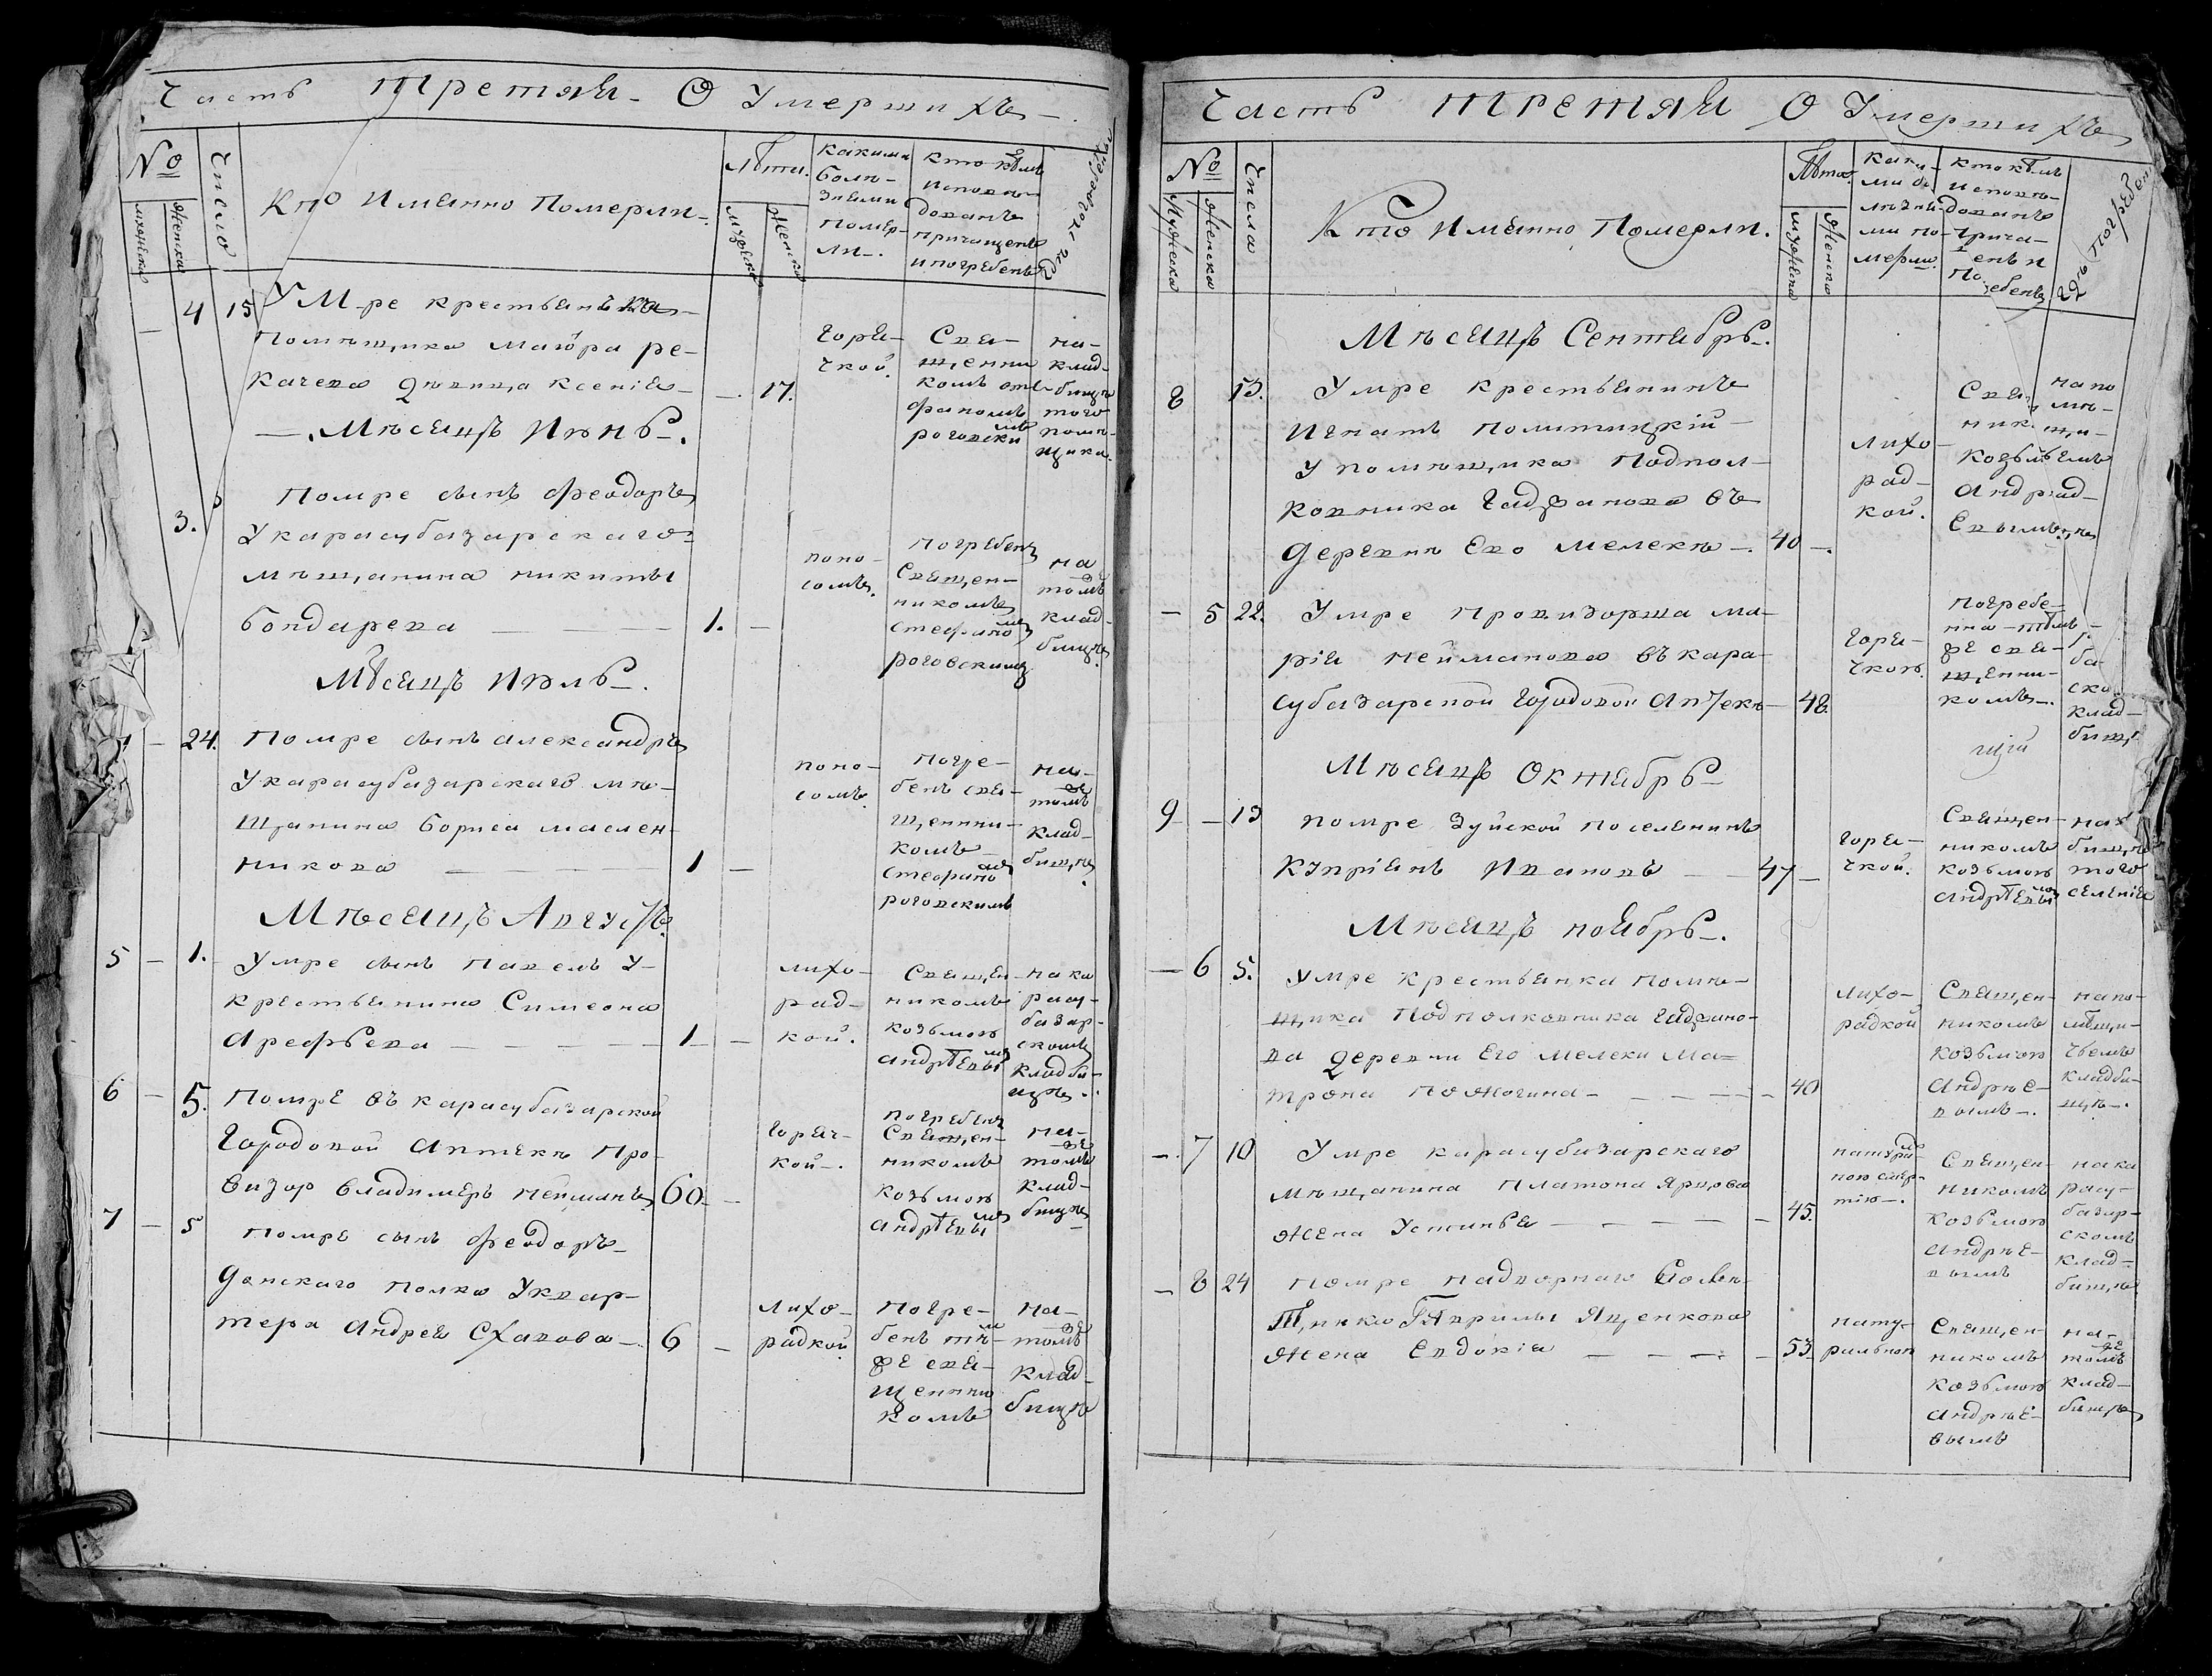 Часть третяя О Умершихъ
№
Число
Кто Имянно Померли
Лѣта.
какими болѣзнями помер-ли.
кто кѣмъ исповѣдованъ причащенъ и погребенъ
гдѣ погребены
мужеска
женска
мужеска
женска
4 15 Умре крестьянъка
помѣщика маіора ре-
качева дѣвица ксенія 17.
горя-
чкой.
Свя-
щенни
комъ сте-
фаномъ
роговски
мъ
на
клад-
бищѣ
того
помѣ-
щика.
Мѣсяцъ Июнь.
3. Помре сынъ феодоръ
У карасубазарскаго
мѣщанина никиты
бондарева 1.
поно-
сомъ.
Погребенъ
Священ-
никомъ
Стефано
мъ
роговскимъ
на
томъ
же
клад-
бищѣ.
Мѣсяцъ Июль.
24. Помре сынъ александръ
У карасубазарскаго мѣ-
щанина бориса маслен-
никова 1
поно-
сомъ.
погре-
бенъ свя-
щенни-
комъ
Стефано
мъ
роговскимъ
на-
томъ
же
клад-
бищѣ.
Мѣсяцъ Августъ.
5 1. Умре сынъ павелъ У
крестьянина Симеона
Арефьева 1
лихо-
рад-
кой.
Священ-
никомъ
козьмою
андрѣевы
мъ
на ка
расу-
базар-
скомъ
кладби-
щѣ.
6 5. Помре въ карасубазарской
Городовой Аптекѣ Про-
визор владимеръ нейманъ 60
горяч-
кой.
погребенъ
Священ-
никомъ
козьмою
андрѣевы
мъ
на-
томъ
же
клад-
бищѣ
7 5 помре сынъ феодоръ
Донскаго полка Уквар-
тера андрея 6
лихо-
радкой
погре-
бенъ тѣ
мъ
же свя-
щенни
комъ
на-
томъ
же
клад-
бищѣ
Часть третяя О Умершихъ
№
Числа
Кто Имянно Померли.
Лѣта.
каки-
ми бо
лѣзня-
ми по-
мерли.
кто кѣмъ
исповѣ-
дованъ
прича-
гдѣ погребен
мужеска
женска
мужеска
женска
Мѣсяцъ Сентябрь.
8 13. Умре крестьянинъ
Игнатъ политицкій
у помѣщика Подпол-
ковника Гаджанова въ
деревнѣ Его мелекѣ 40
лихо
рад-
кой.
ник
козьм
Андрѣ
Евымъ
на по
мѣ-
щи-
5 22. Умре провизорша ма-
рія нейманова въ кара-
субазарской Городовой аптекѣ 48.
горя-
чкою.
погребе-
нна тѣмъ
же свя-
щенни-
комъ.
ба
ско
клад-
бищѣ
Мѣсяцъ Октябрь
9 13 помре зуйской поселянинъ
Купріянъ Ивановъ 47
горя-
чкой.
Священ-
никомъ
козьмою
андрѣевы
мъ
на
бищѣ
того
селенія
Мѣсяцъ ноябрь.
6 5. Умре крестьянка помѣ-
щика Подполковника Гаджано-
ва деревни Его мелеки Ма-
трона Пожогина 40
лихо-
радкой
Священ-
никомъ
козьмою
Андрѣе-
вымъ.
на по-
мѣщи-
чьемъ
кладби-
щѣ.
7 10 Умре карасубазарскаго
мѣщанина Платона Ярцова
жена Устинья 45.
натура
ль
ною смер-
тію.
Священ-
никомъ
козьмою
андрѣе-
вымъ
на ка
расу-
базар-
скомъ
клад-
бищѣ
8 24 Помре надворнаго Совѣ-
тника Гаврилы Яценкова
жена Евдокія 53
нату-
ральною
Священ-
никомъ
козьмою
андрѣе-
вымъ
на-
томъ
же
клад-
бищѣ